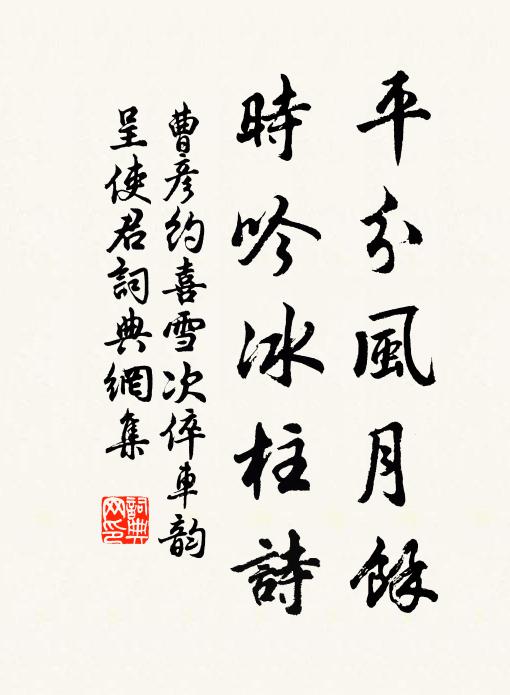 平分風月餘
時吟冰柱詩
曹彥約喜雪次倅車韵
呈使君詞典網集
詞典
网印